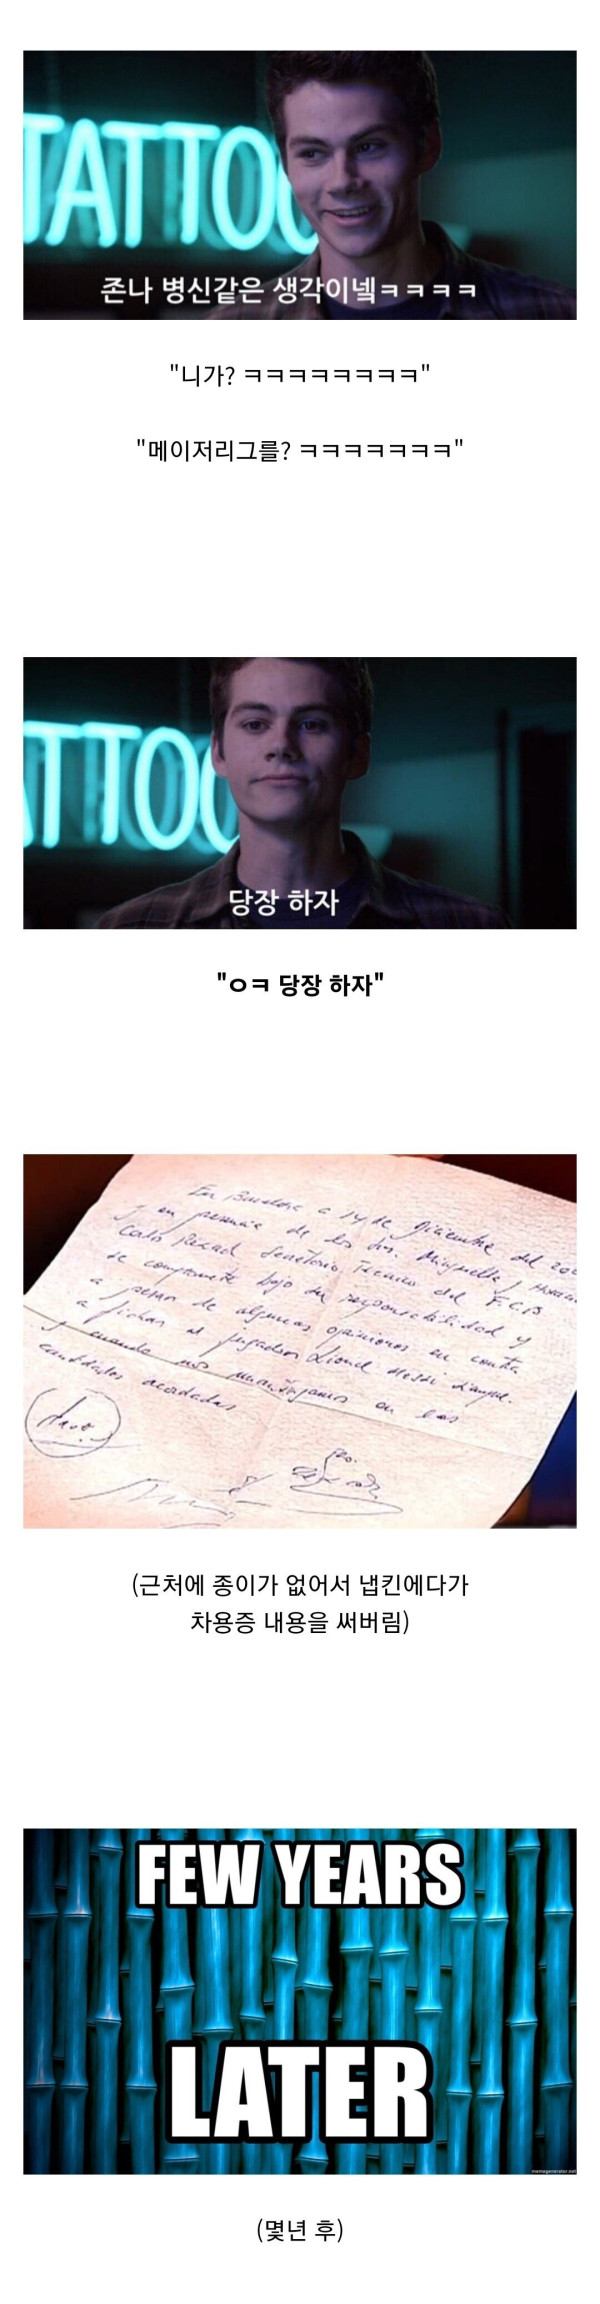 TATTOO
존나 병신같은 생각이넼ㅋㅋㅋㅋ
"니가? ㅋㅋㅋㅋㅋㅋㅋㅋ"
"메이저리그를? ㅋㅋㅋㅋㅋㅋㅋ"
TTOO
당장 하자
"ㅇㅋ 당장 하자"
En Barcelona a 14 de diciembre del 200
en presencia de los Srs. Minguella y
Carlos Rexach Secretario Técnico del F.C.B
se compromete bajo su responsabilidad y
a pesar de algunas opiniones en contra
a fichar al jugador Lionel Messi
y cuando nos mantengamos en las
cantidades acordadas
(근처에 종이가 없어서 냅킨에다가
차용증 내용을 써버림)
FEW YEARS
LATER
memegenerator.net
(몇년 후)